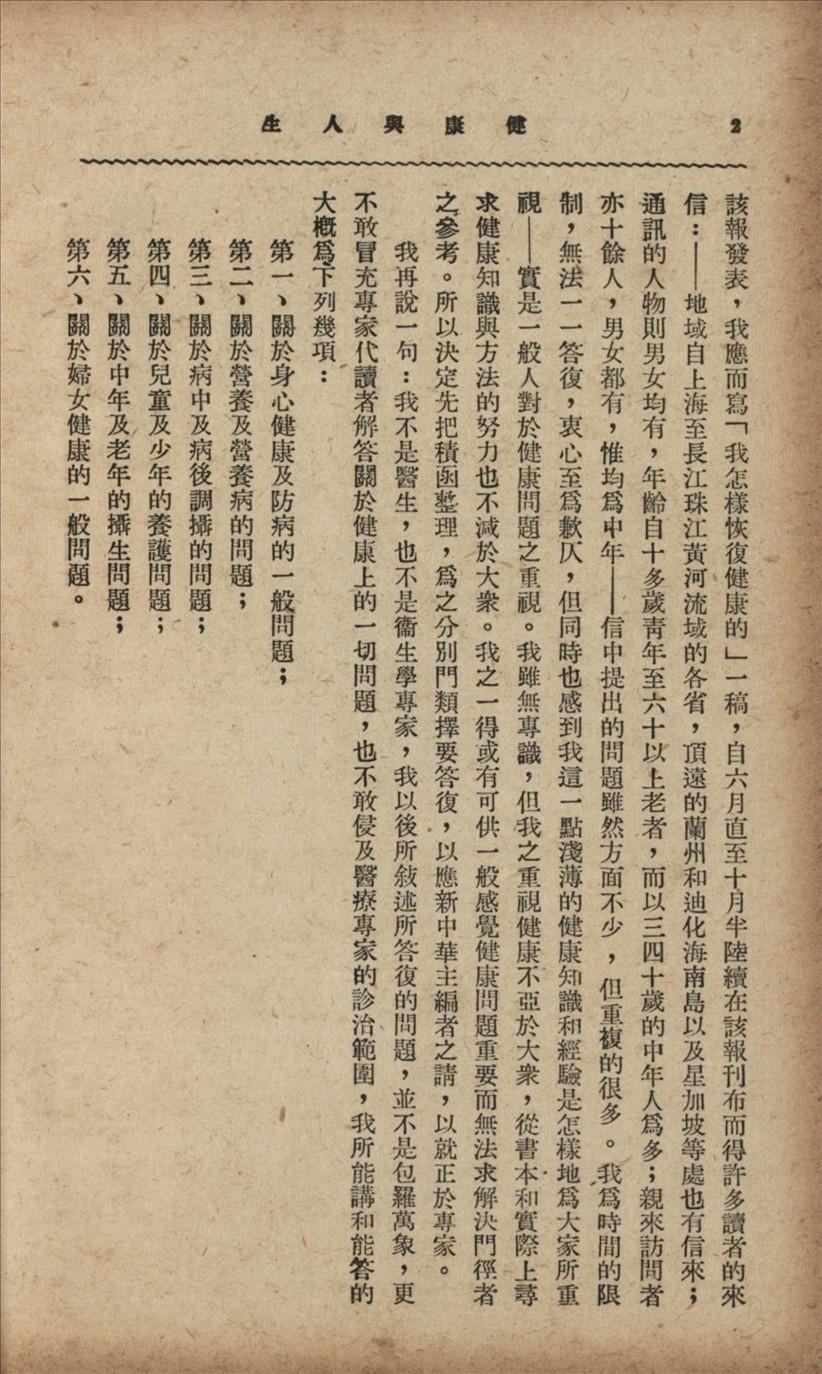 2
健康與人生
該報發表，我應而寫「我怎樣恢復健康的」一稿，自六月直至十月半陸續在該報刊布而得許多讀者的來
信：——地域自上海至長江珠江黃河流域的各省，頂遠的蘭州和迪化海南島以及星加坡等處也有信來；
通訊的人物則男女均有，年齡自十多歲靑年至六十以上老者，而以三四十歲的中年人爲多；親來訪問者
亦十餘人，男女都有，惟均爲中年——信中提出的問題雖然方面不少，但重複的很多。我爲時間的限
制，無法一一答復，衷心至爲歉仄，但同時也感到我這一點淺薄的健康知識和經驗是怎樣地爲大家所重
視——實是一般人對於健康問題之重視。我雖無專識，但我之重視健康不亞於大衆，從書本和實際上尋
求健康知識與方法的努力也不減於大衆。我之一得或有可供一般感覺健康問題重要而無法求解決門徑者
之參考。所以決定先把積函整理，爲之分別門類擇要答復，以應新中華主編者之請，以就正於專家。
我再說一句：我不是醫生，也不是衞生學專家，我以後所敍述所答復的問題，並不是包羅萬象，更
不敢冒充專家代讀者解答關於健康上的一切問題，也不敢侵及醫療專家的診治範圍，我所能講和能答的
大概爲下列幾項：
第一、關於身心健康及防病的一般問題；
第二、關於營養及營養病的問題；
第三、關於病中及病後調攝的問題；
第四、關於兒童及少年的養護問題；
第五、關於中年及老年的攝生問題；
第六、關於婦女健康的一般問題。